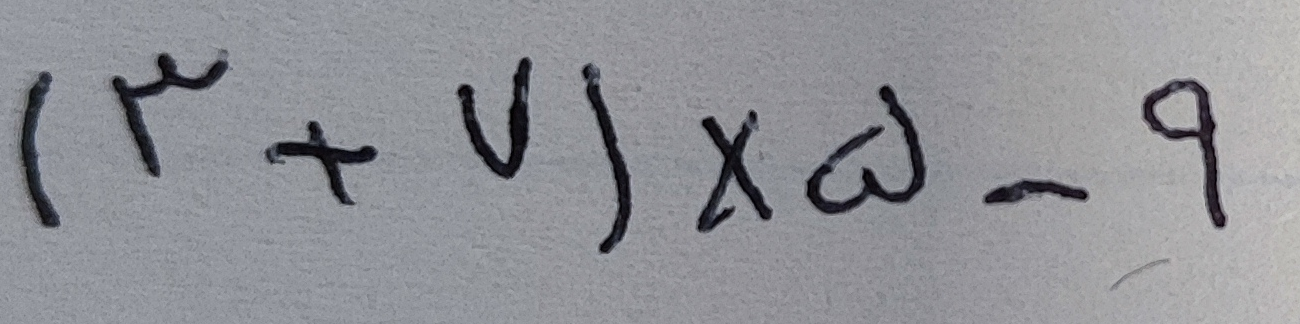 (۳ + ۷) × ۵ - ۹